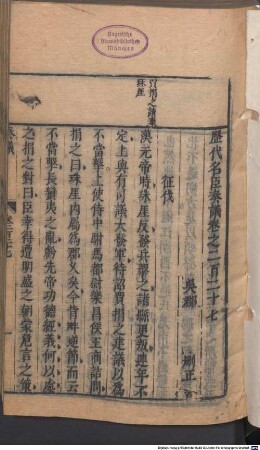 Bayerische
Staatsbibliothek
München
賈捐之議棄
珠崖
歷代名臣奏議卷之二百二十七
吳郡 刪正
征伐
漢元帝時珠崖反發兵擊之諸縣更叛連年不
定上與有司議大發軍待詔賈捐之建議以爲
不當擊上使侍中駙馬都尉樂昌侯王商詰問
捐之曰珠崖內屬爲郡久矣今背畔逆節而云
不當擊長蠻夷之亂虧先帝功德經義何以處
之捐之對曰臣幸得遭明盛之朝蒙危言之策
奏議